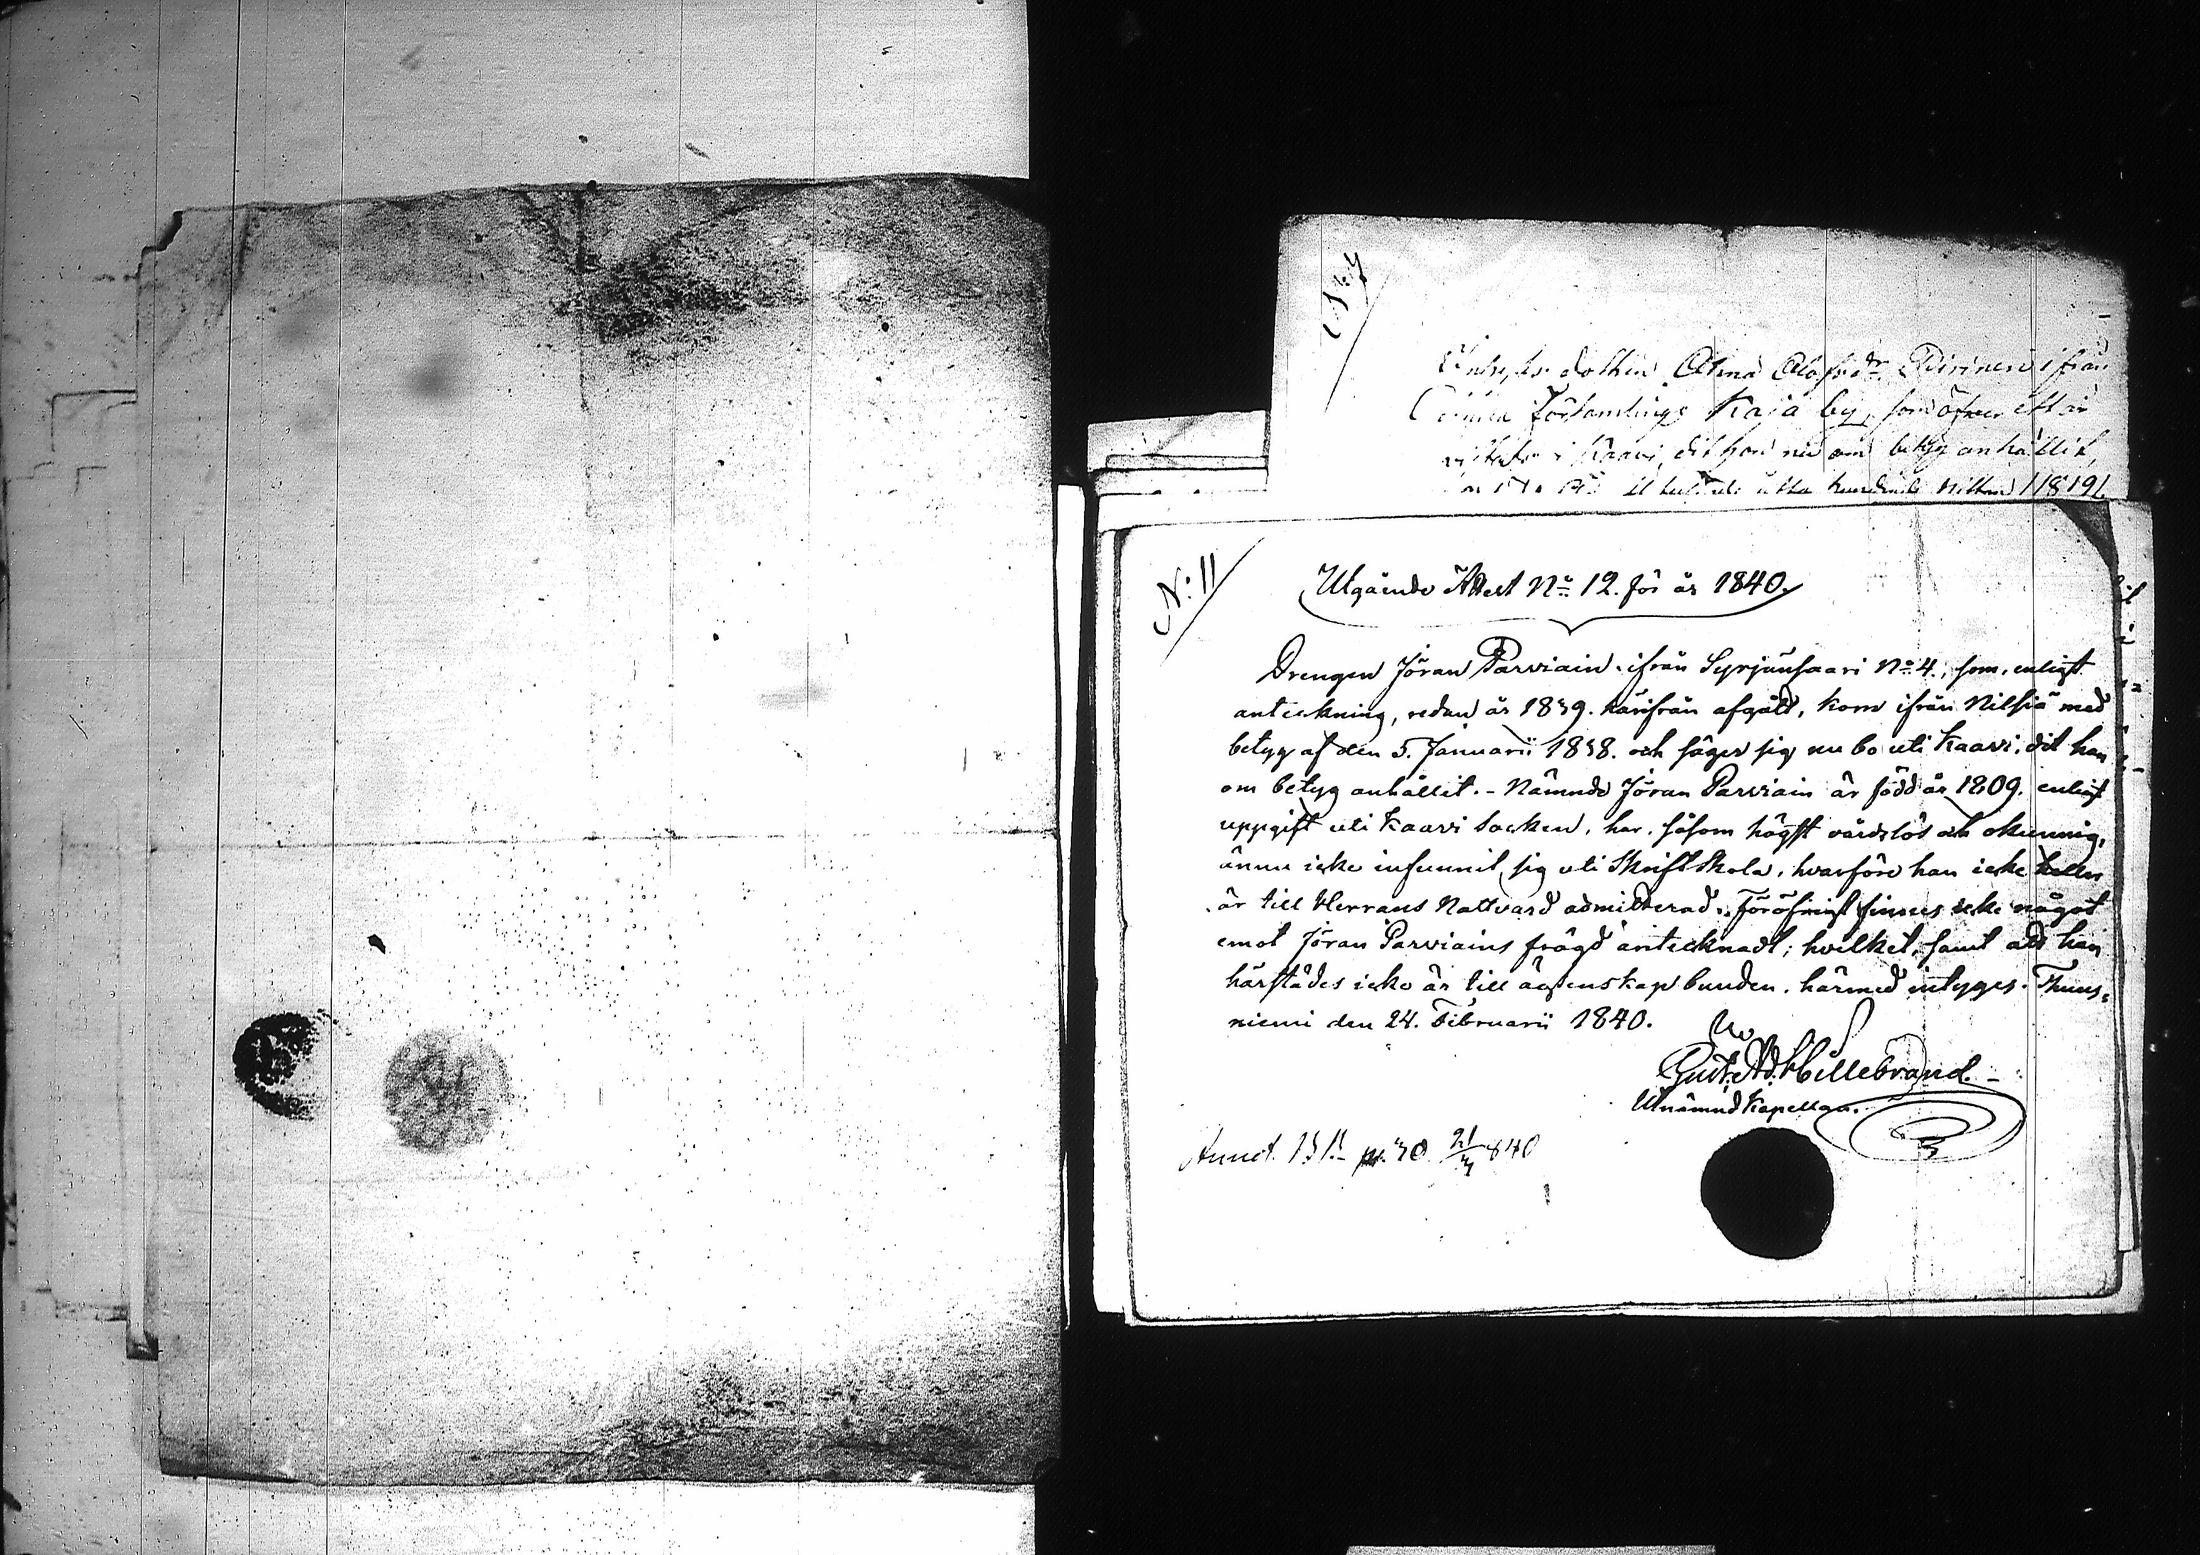 dottren Anna Olofsdr. Piirinen ifrån
Församlings Kaja by, som öfver ett år
i Kaavi, dit hon nu om betyg anhållit,
åtta hundrade nitton (1819)
N:o 11
Utgående Attest No 12. för år 1840.
Drengen Jöran Parviain. ifrån Syrjänsaari No 4., som, enligt
anteckning, redan år 1839. härifrån afgått, kom ifrån Nilsiä med
betyg af den 5. Januarii 1838. och säger sig nu bo uti Kaavi, dit han
om betyg anhållit. - Nämnde Jöran Parviain är född år 1809. enligt
uppgift uti Kaavi Socken, har, såsom högst vårdslös och okunnig,
ännu icke infunnit sig uti Skriftskola, hvarföre han icke heller
är till Herrans Nattvard admitterad. Föröfrigt finnes icke något
emot Jöran Parviains frägd antecknadt; hvilket, samt att han
härstädes icke är till ägtenskap bunden, härmed intygas. Thuus-
niemi den 24. Februarii 1840.
Gust. Ad. Hillebrand.
Utnämnd Kapellan.
Annot. p. 30 21/3 840